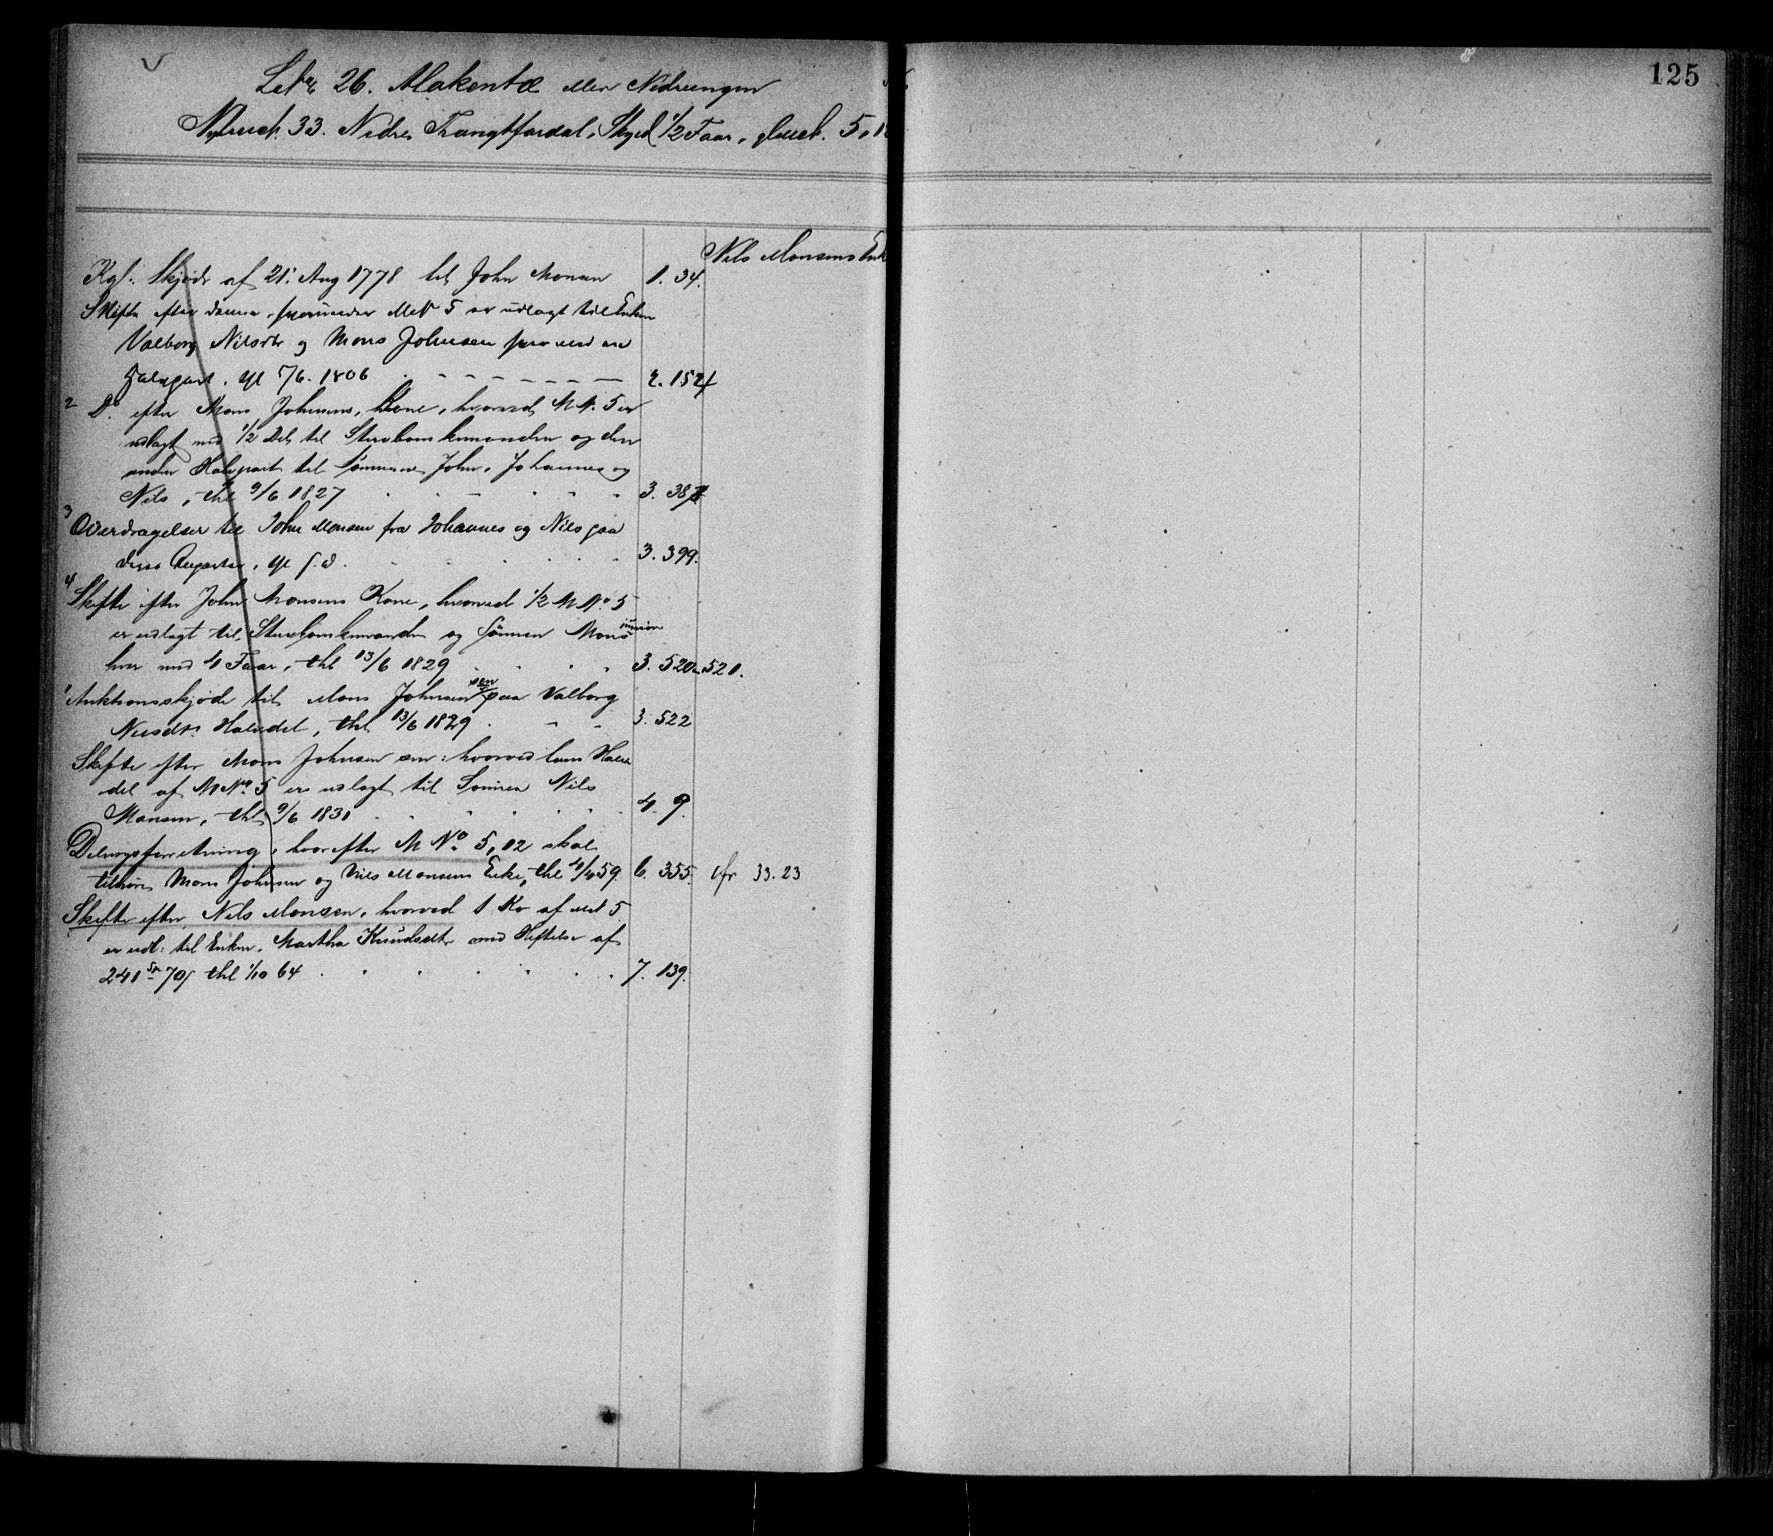 125
26. eller
33. Nedre Skyld 1/2 Faar, 5,
Nils Monsens
Kgl. Skjøde af 21: Aug 1778 til John Monsen 1. 34.
Skifte efter denne, 5 er udlagt til Enken
Valborg Nilsdtr og Mons Johnsen
Halvpart, 1806 2. 152
2 Do efter Mons Johnsens Kone, hvorved M No. 5 er
udlagt med 1/2 Del til Sterbomkemanden og den
anden Halvpart til Sønnerne John, Johannes og
Nils, thl 9/6 1827 3.
3 Overdragelser til John Monsen fra Johannes og Nils paa
deres Anparter, 3. 399.
4 Skifte efter John Monsens Kone, hvorved 1/2 M No. 5
er udlagt til Sterbomkemanden og Sønnen Mons junior
hver med 4 Faar, thl 13/6 1829 3. 520 521.
1 Auktionsskjøde til Mons Johnsen sen paa Valborg
Halvdel, thl 13/6 1829 3. 522
Skifte efter Mons Johnsen sen: hvorved hans Halv
del af M No 5 er udlagt til Sønnen Nils
Monsen, thl 9/6 1831 4. 9.
Delingsforretning, hvorefter M No. 5, 12 skal
tilhøre Mons Johnsen og Nils Monsens Enke, thl 59 6. 355. cfr 33. 23
Skifte efter Nils Monsen, hvorved 1 Ko af M No 5
er udl: til Enken Martha Knudsdtr med Heftelse af
241 70 thl 1/10 64 7. 139.